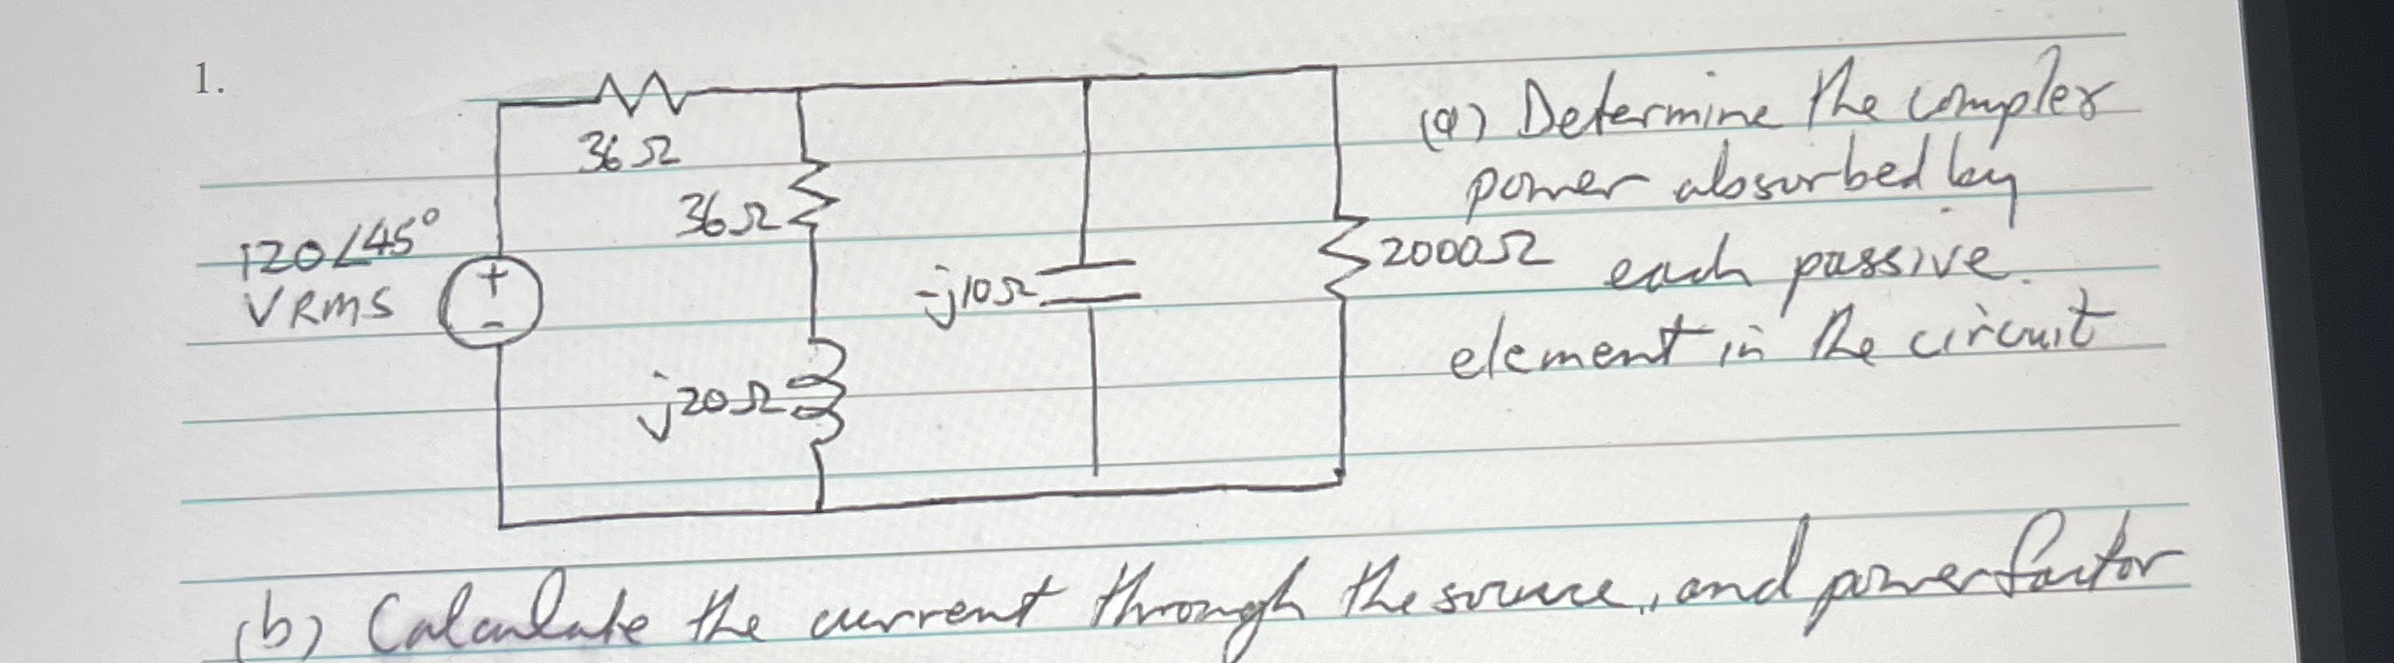 1.
36Ω
36Ω
120∠45°
VRMS
+
-
-j10Ω
j20Ω
2000Ω
(a) Determine the complex
power absorbed by
each passive
element in the circuit
(b) Calculate the current through the source, and power factor